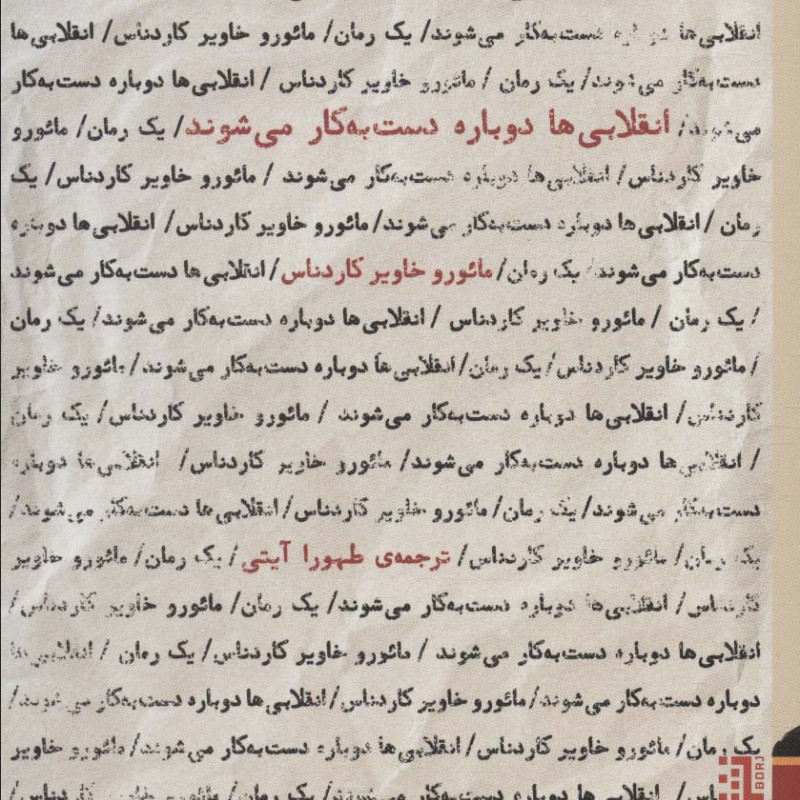 انقلابی‌ها دوباره دست‌به‌کار می‌شوند/ یک رمان/ مائورو خاویر کاردناس/ انقلابی‌ها
دست‌به‌کار می‌شوند/ یک رمان / مائورو خاویر کاردناس / انقلابی‌ها دوباره دست‌به‌کار
می‌شوند/ انقلابی‌ها دوباره دست‌به‌کار می‌شوند/ یک رمان/ مائورو
خاویر کاردناس/ انقلابی‌ها دوباره دست‌به‌کار می‌شوند / مائورو خاویر کاردناس/ یک
رمان / انقلابی‌ها دوباره دست‌به‌کار می‌شوند/ مائورو خاویر کاردناس/ انقلابی‌ها دوباره
دست‌به‌کار می‌شوند/ یک رمان/ مائورو خاویر کاردناس/ انقلابی‌ها دست‌به‌کار می‌شوند
/ یک رمان / مائورو خاویر کاردناس / انقلابی‌ها دوباره دست‌به‌کار می‌شوند/ یک رمان
/ مائورو خاویر کاردناس/ یک رمان/ انقلابی‌ها دوباره دست‌به‌کار می‌شوند/ مائورو خاویر
کاردناس/ انقلابی‌ها دوباره دست‌به‌کار می‌شوند / مائورو خاویر کاردناس/ یک رمان
/ انقلابی‌ها دوباره دست‌به‌کار می‌شوند/ مائورو خاویر کاردناس/ انقلابی‌ها دوباره
دست‌به‌کار می‌شوند/ یک رمان/ مائورو خاویر کاردناس/ انقلابی‌ها دست‌به‌کار می‌شوند/
یک رمان/ مائورو خاویر کاردناس/ ترجمه‌ی طهورا آیتی/ یک رمان/ مائورو خاویر
کاردناس/ انقلابی‌ها دوباره دست‌به‌کار می‌شوند/ یک رمان/ مائورو خاویر کاردناس/
انقلابی‌ها دوباره دست‌به‌کار می‌شوند / مائورو خاویر کاردناس/ یک رمان / انقلابی‌ها
دوباره دست‌به‌کار می‌شوند/ مائورو خاویر کاردناس/ انقلابی‌ها دوباره دست‌به‌کار می‌شوند/
یک رمان/ مائورو خاویر کاردناس/ انقلابی‌ها دوباره دست‌به‌کار می‌شوند/ مائورو خاویر
انقلابی‌ها دوباره دست‌به‌کار می‌شوند/ یک رمان/ مائورو خاویر کاردناس/
BORJ